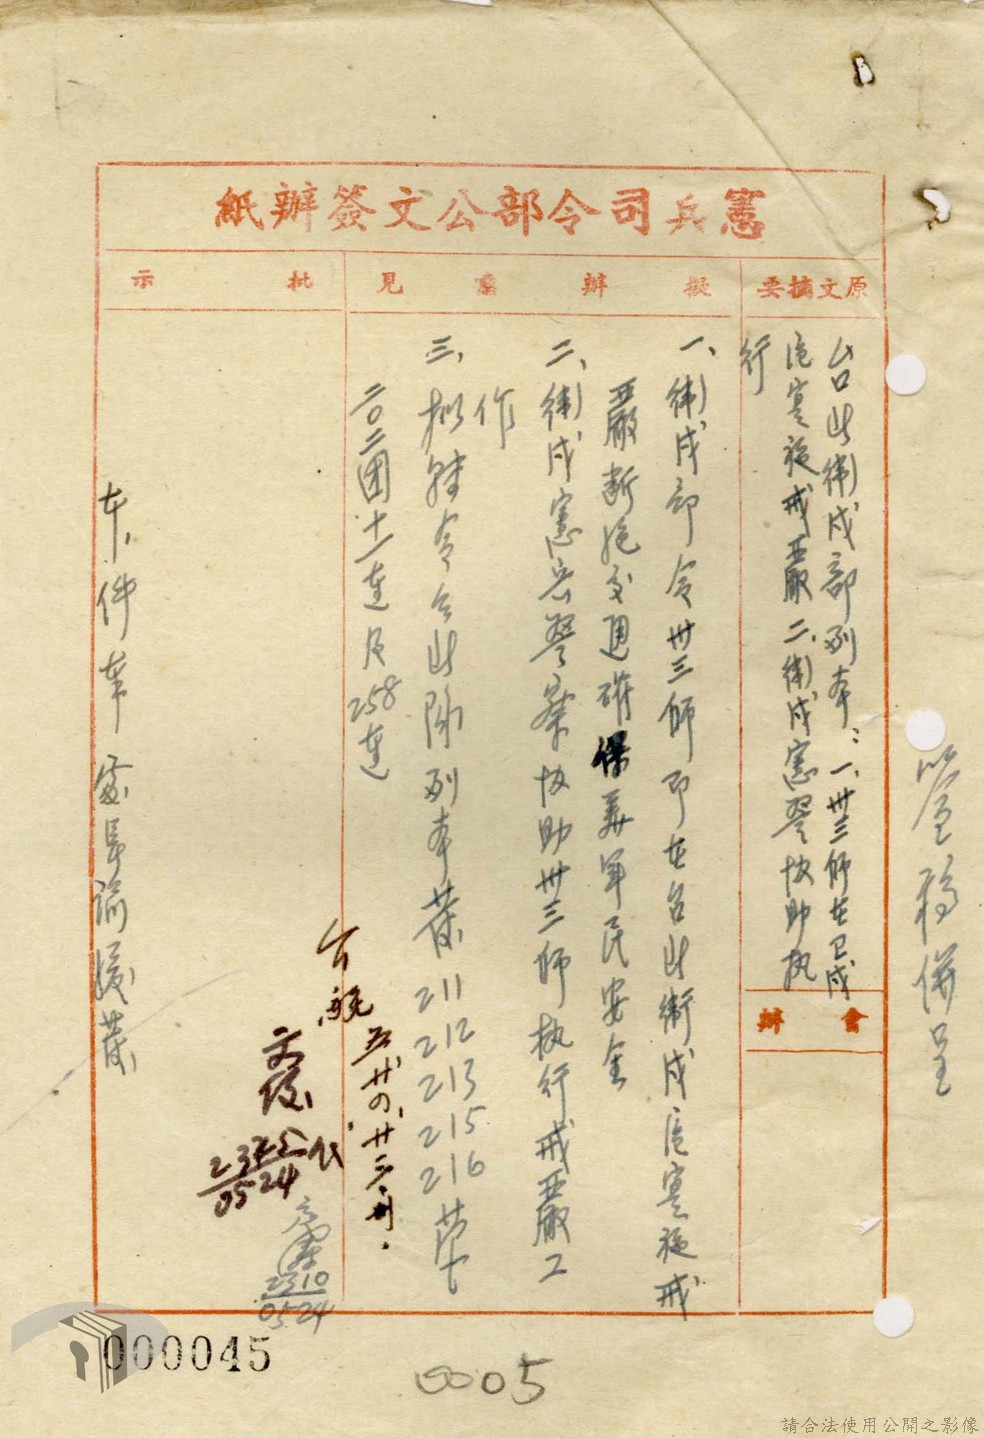 憲兵司令部公文簽辦紙
原文摘要
擬辦意見
批示
台北衛戍部列本：一、卅三師在已戍
區實施戒嚴二、衛戍憲警協助执
行
會辦
一、衛戍部令卅三師即在台北衛戍區實施戒
嚴斷絕交通確保美軍民安全
二、衛戍憲兵警察協助卅三師执行戒嚴工
作
三、拟轉令台北隊列本業211 212 213 215 216
二〇二團十一連及258連
本件奉
簽稿併呈
五、廿四、廿三
2325
05 24
2310
05 24
000045
0005
請合法使用公開之影像